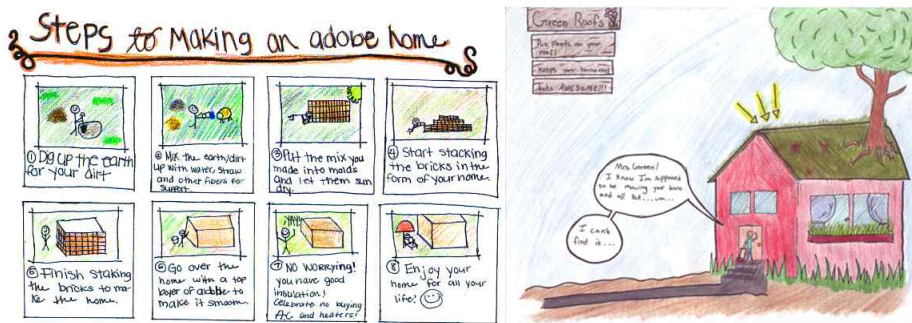 Steps to Making an adobe home
① Dig up the earth
for your dirt
② Mix the earth/dirt
up with water, straw
and other fibers for
support.
③ Put the mix you
made into molds
and let them sun
dry.
④ Start stacking
the bricks in the
form of your home.
⑤ Finish staking
the bricks to ma-
ke the home.
⑥ Go over the
home with a top
layer of adobe to
make it smooth.
⑦ NO WORRYING!
you have good
insulation!
Celebrate no buying
AC and heaters!
⑧ Enjoy your
home for all your
life!
Green Roofs
Put plants on your
roof!
Keeps your house
Looks AWESOME!!!
Mrs. Green!
I know I'm supposed
to be mowing your lawn
and all but...um...
I can't
find it...